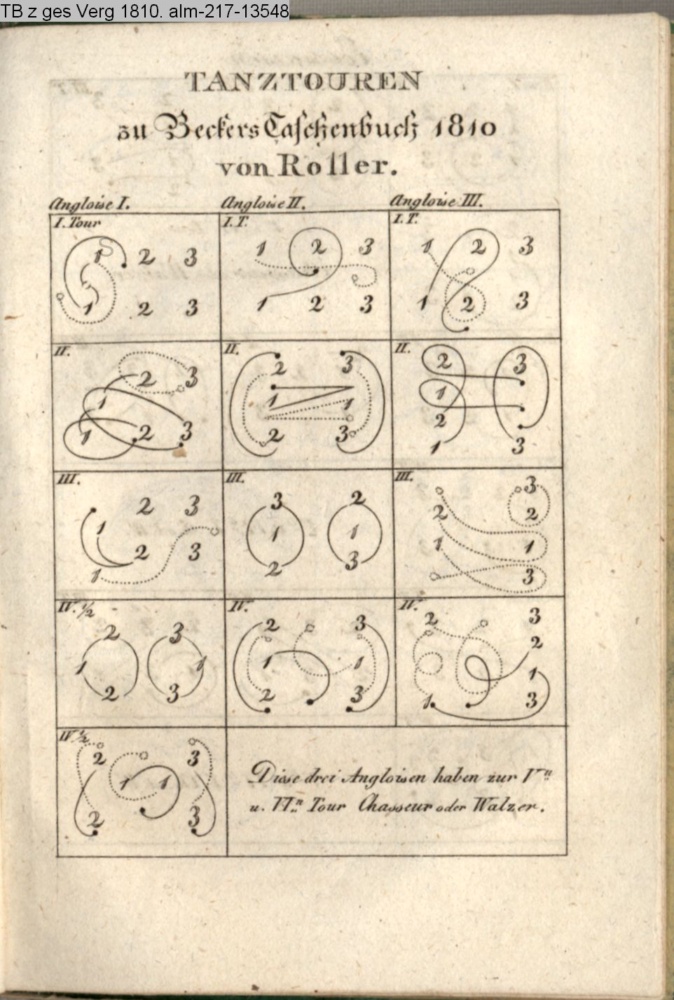 TB z ges Verg 1810. alm-217-13548
TANZTOUREN
zu Beckers Taschenbuch 1810
von Roller.
Angloise I. Angloise II. Angloise III.
I. Tour I. T. I. T.
1 2 3 1 2 3 1 2 3
1 2 3 1 2 3 1 2 3
II. II. II.
2 3 2 3 2 3
1 1 1 1
1 2 3 2 3 2
1 3
III. III. III.
2 3 3 2 3
1 1 1 2 2
2 3 2 3 1 1
1 3
IV. ½ IV. IV.
2 3 2 3 2 3
1 1 1 1 2
2 3 2 3 1
1 3
IV. ½
2 3
1 1
2 3
Diese drei Angloisen haben zur Vᵗᵉⁿ
u. VIᵗⁿ Tour Chasseur oder Walzer.